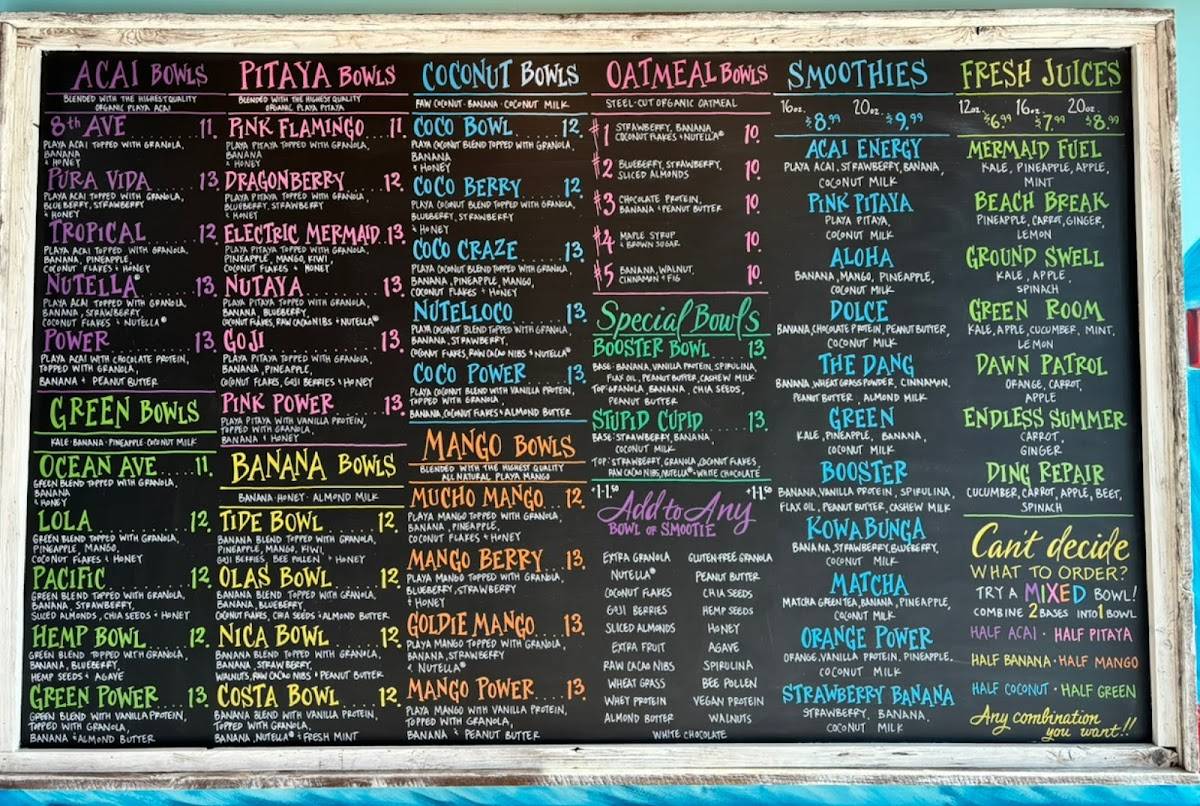 ACAI BOWLS
BLENDED WITH THE HIGHEST QUALITY
ORGANIC PLAYA ACAI
8th AVE 11.
PLAYA ACAI TOPPED WITH GRANOLA,
BANANA
& HONEY
PURA VIDA 13.
PLAYA ACAI TOPPED WITH GRANOLA,
BLUEBERRY, STRAWBERRY
& HONEY
TROPICAL 12
PLAYA ACAI TOPPED WITH GRANOLA,
BANANA, PINEAPPLE,
COCONUT FLAKES & HONEY
NUTELLA® 13.
PLAYA ACAI TOPPED WITH GRANOLA,
BANANA, STRAWBERRY,
COCONUT FLAKES & NUTELLA®
POWER 13
PLAYA ACAI WITH CHOCOLATE PROTEIN,
TOPPED WITH GRANOLA,
BANANA & PEANUT BUTTER
GREEN BOWLS
KALE · BANANA · PINEAPPLE · COCONUT MILK
OCEAN AVE 11.
GREEN BLEND TOPPED WITH GRANOLA,
BANANA
& HONEY
LOLA 12.
GREEN BLEND TOPPED WITH GRANOLA,
PINEAPPLE, MANGO,
COCONUT FLAKES & HONEY
PACIFIC 12.
GREEN BLEND TOPPED WITH GRANOLA,
BANANA, STRAWBERRY,
SLICED ALMONDS, CHIA SEEDS & HONEY
HEMP BOWL 12.
GREEN BLEND TOPPED WITH GRANOLA,
BANANA, BLUEBERRY,
HEMP SEEDS & AGAVE
GREEN POWER 13.
GREEN BLEND WITH VANILLA PROTEIN,
TOPPED WITH GRANOLA,
BANANA & ALMOND BUTTER
PITAYA BOWLS
BLENDED WITH THE HIGHEST QUALITY
ORGANIC PLAYA PITAYA
PINK FLAMINGO 11.
PLAYA PITAYA TOPPED WITH GRANOLA,
BANANA
& HONEY
DRAGONBERRY 12.
PLAYA PITAYA TOPPED WITH GRANOLA,
BLUEBERRY, STRAWBERRY
& HONEY
ELECTRIC MERMAID 13.
PLAYA PITAYA TOPPED WITH GRANOLA,
PINEAPPLE, MANGO, KIWI,
COCONUT FLAKES & HONEY
NUTAYA 13.
PLAYA PITAYA TOPPED WITH GRANOLA,
BANANA, BLUEBERRY,
COCONUT FLAKES, RAW CACAO NIBS & NUTELLA®
GOJI 13.
PLAYA PITAYA TOPPED WITH GRANOLA,
BANANA, PINEAPPLE,
COCONUT FLAKES, GOJI BERRIES & HONEY
PINK POWER 13.
PLAYA PITAYA WITH VANILLA PROTEIN,
TOPPED WITH GRANOLA,
BANANA & HONEY
BANANA BOWLS
BANANA · HONEY · ALMOND MILK
TIDE BOWL 12.
BANANA BLEND TOPPED WITH GRANOLA,
PINEAPPLE, MANGO, KIWI,
GOJI BERRIES, BEE POLLEN & HONEY
OLAS BOWL 12.
BANANA BLEND TOPPED WITH GRANOLA,
BANANA, BLUEBERRY,
COCONUT FLAKES, CHIA SEEDS & ALMOND BUTTER
NICA BOWL 12.
BANANA BLEND TOPPED WITH GRANOLA,
BANANA, STRAWBERRY,
WALNUTS, RAW CACAO NIBS & PEANUT BUTTER
COSTA BOWL 12.
BANANA BLEND WITH VANILLA PROTEIN,
TOPPED WITH GRANOLA,
BANANA, NUTELLA® & FRESH MINT
COCONUT BOWLS
RAW COCONUT · BANANA · COCONUT MILK
COCO BOWL 12.
PLAYA COCONUT BLEND TOPPED WITH GRANOLA,
BANANA
& HONEY
COCO BERRY 12
PLAYA COCONUT BLEND TOPPED WITH GRANOLA,
BLUEBERRY, STRAWBERRY
& HONEY
COCO CRAZE 13.
PLAYA COCONUT BLEND TOPPED WITH GRANOLA,
BANANA, PINEAPPLE, MANGO,
COCONUT FLAKES & HONEY
NUTELLOCO 13.
PLAYA COCONUT BLEND TOPPED WITH GRANOLA,
BANANA, STRAWBERRY,
COCONUT FLAKES, RAW CACAO NIBS & NUTELLA®
COCO POWER 13.
PLAYA COCONUT BLEND WITH VANILLA PROTEIN,
TOPPED WITH GRANOLA,
BANANA, COCONUT FLAKES & ALMOND BUTTER
MANGO BOWLS
BLENDED WITH THE HIGHEST QUALITY
ALL NATURAL PLAYA MANGO
MUCHO MANGO 12.
PLAYA MANGO TOPPED WITH GRANOLA,
BANANA, PINEAPPLE,
COCONUT FLAKES & HONEY
MANGO BERRY 13.
PLAYA MANGO TOPPED WITH GRANOLA,
BLUEBERRY, STRAWBERRY
& HONEY
GOLDIE MANGO 13.
PLAYA MANGO TOPPED WITH GRANOLA,
BANANA, STRAWBERRY
& NUTELLA®
MANGO POWER 13.
PLAYA MANGO WITH VANILLA PROTEIN,
TOPPED WITH GRANOLA,
BANANA & PEANUT BUTTER
OATMEAL BOWLS
STEEL-CUT ORGANIC OATMEAL
#1 STRAWBERRY, BANANA, 10.
COCONUT FLAKES & NUTELLA®
#2 BLUEBERRY, STRAWBERRY, 10.
SLICED ALMONDS
#3 CHOCOLATE PROTEIN, 10.
BANANA & PEANUT BUTTER
#4 MAPLE SYRUP 10.
& BROWN SUGAR
#5 BANANA, WALNUT, 10.
CINNAMON & FIG
Special Bowls
BOOSTER BOWL 13.
BASE: BANANA, VANILLA PROTEIN, SPIRULINA,
FLAX OIL, PEANUT BUTTER, CASHEW MILK
TOP: GRANOLA, BANANA, CHIA SEEDS,
PEANUT BUTTER
STUPID CUPID 13.
BASE: STRAWBERRY, BANANA,
COCONUT MILK
TOP: STRAWBERRY, GRANOLA, COCONUT FLAKES,
RAW CACAO NIBS, NUTELLA® · WHITE CHOCOLATE
+1-1.50 +1-1.50
Add to Any
BOWL OR SMOOTIE
EXTRA GRANOLA GLUTEN-FREE GRANOLA
NUTELLA® PEANUT BUTTER
COCONUT FLAKES CHIA SEEDS
GOJI BERRIES HEMP SEEDS
SLICED ALMONDS HONEY
EXTRA FRUIT AGAVE
RAW CACAO NIBS SPIRULINA
WHEAT GRASS BEE POLLEN
WHEY PROTEIN VEGAN PROTEIN
ALMOND BUTTER WALNUTS
WHITE CHOCOLATE
SMOOTHIES
16oz. $8.99 20oz. $9.99
ACAI ENERGY
PLAYA ACAI, STRAWBERRY, BANANA,
COCONUT MILK
PINK PITAYA
PLAYA PITAYA,
COCONUT MILK
ALOHA
BANANA, MANGO, PINEAPPLE,
COCONUT MILK
DOLCE
BANANA, CHOCOLATE PROTEIN, PEANUT BUTTER,
COCONUT MILK
THE DANG
BANANA, WHEAT GRASS POWDER, CINNAMON,
PEANUT BUTTER, ALMOND MILK
GREEN
KALE, PINEAPPLE, BANANA,
COCONUT MILK
BOOSTER
BANANA, VANILLA PROTEIN, SPIRULINA,
FLAX OIL, PEANUT BUTTER, CASHEW MILK
KOWABUNGA
BANANA, STRAWBERRY, BLUEBERRY,
COCONUT MILK
MATCHA
MATCHA GREEN TEA, BANANA, PINEAPPLE,
COCONUT MILK
ORANGE POWER
ORANGE, VANILLA PROTEIN, PINEAPPLE,
COCONUT MILK
STRAWBERRY BANANA
STRAWBERRY, BANANA,
COCONUT MILK
FRESH JUICES
12oz. $6.99 16oz. $7.99 20oz. $8.99
MERMAID FUEL
KALE, PINEAPPLE, APPLE,
MINT
BEACH BREAK
PINEAPPLE, CARROT, GINGER,
LEMON
GROUND SWELL
KALE, APPLE,
SPINACH
GREEN ROOM
KALE, APPLE, CUCUMBER, MINT,
LEMON
DAWN PATROL
ORANGE, CARROT,
APPLE
ENDLESS SUMMER
CARROT,
GINGER
DING REPAIR
CUCUMBER, CARROT, APPLE, BEET,
SPINACH
Can't decide
WHAT TO ORDER?
TRY A MIXED BOWL!
COMBINE 2 BASES INTO 1 BOWL
HALF ACAI · HALF PITAYA
HALF BANANA · HALF MANGO
HALF COCONUT · HALF GREEN
Any combination
you want!!